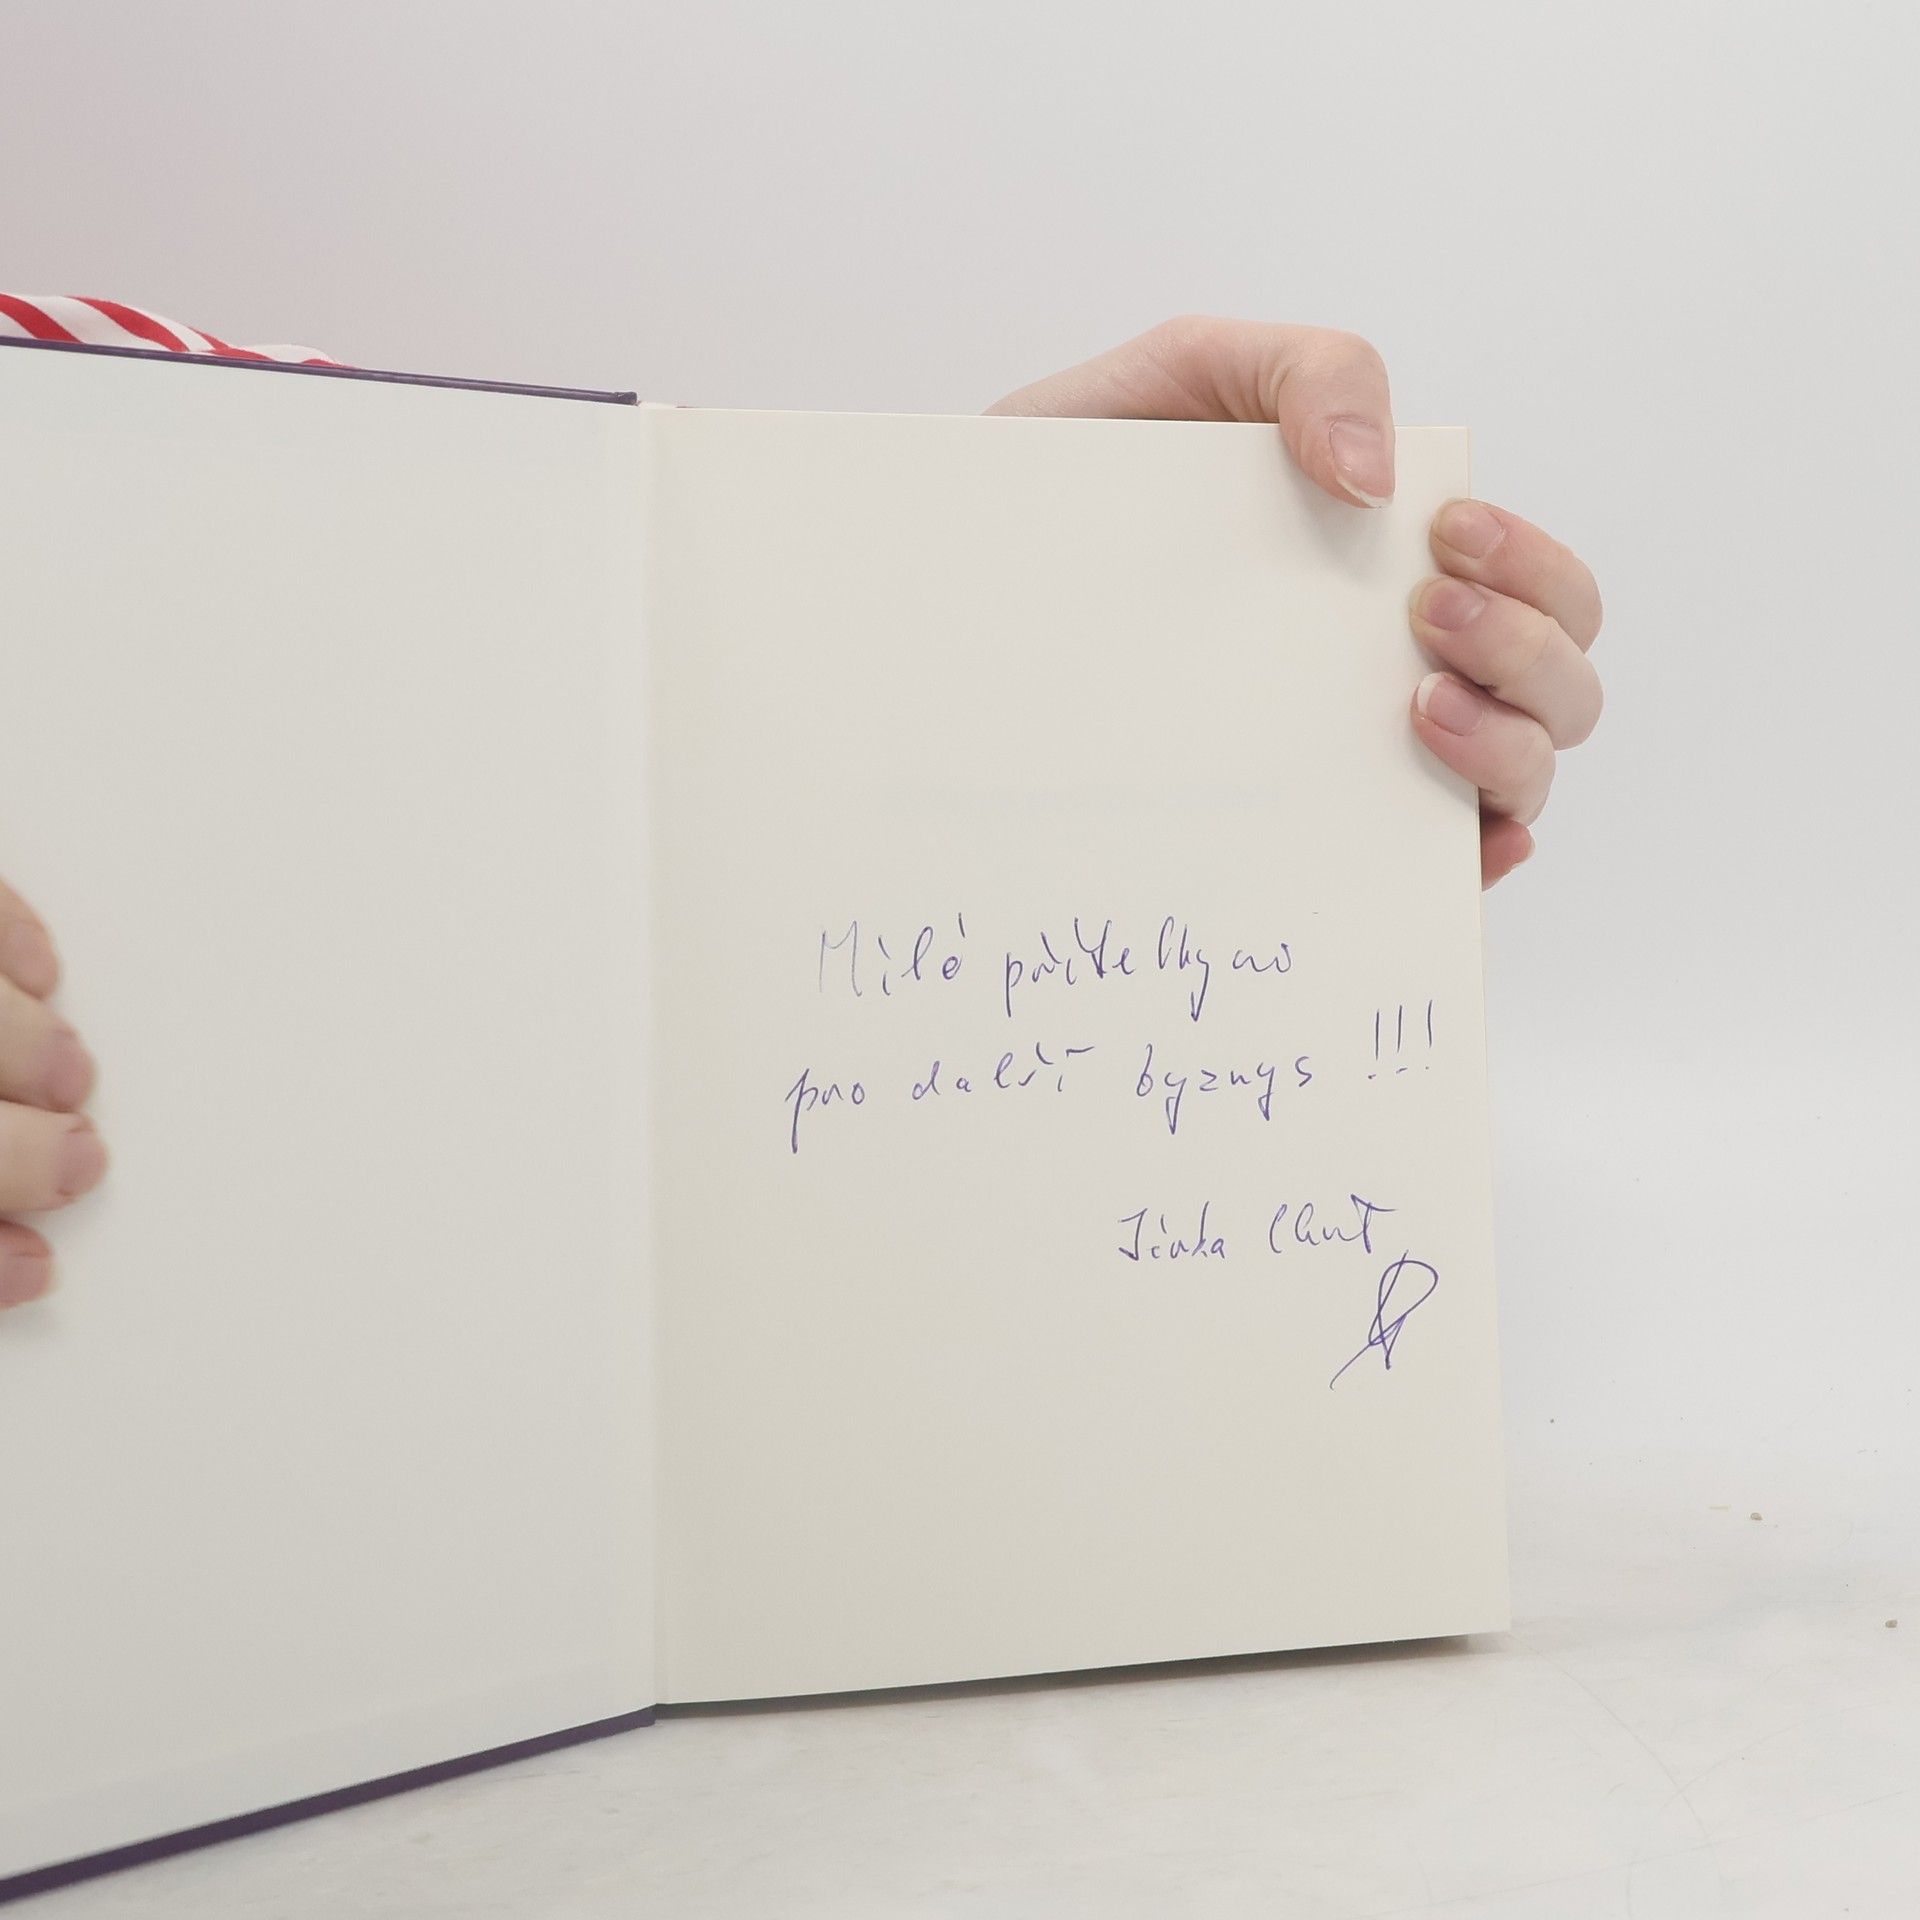 Milé přítelkyni
pro další byznys !!!
Jirka Chuť